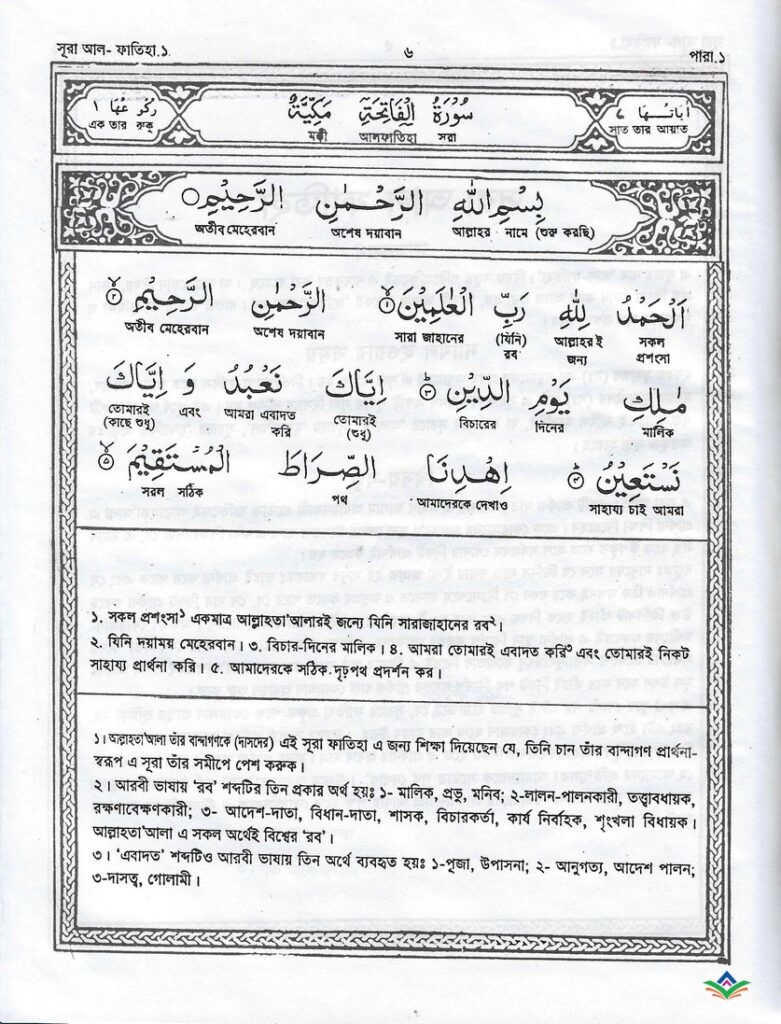 সূরা আল- ফাতিহা.১ ৬ পারা.১
رُكُوْعُهَا ١ سُوْرَةُ الْفَاتِحَةِ مَكِّيَّةٌ اٰيَاتُهَا ٧
এক তার রুকু মক্কী আলফাতিহা সূরা সাত তার আয়াত
بِسْمِ اللّٰهِ الرَّحْمٰنِ الرَّحِيْمِ ○
অতীব মেহেরবান অশেষ দয়াবান আল্লাহর নামে (শুরু করছি)
اَلْحَمْدُ لِلّٰهِ رَبِّ الْعٰلَمِيْنَ ۝١ الرَّحْمٰنِ الرَّحِيْمِ ۝٢
অতীব মেহেরবান অশেষ দয়াবান সারা জাহানের (যিনি) রব আল্লাহরই জন্য সকল প্রশংসা
مٰلِكِ يَوْمِ الدِّيْنِ ۝٣ اِيَّاكَ نَعْبُدُ وَ اِيَّاكَ
তোমারই (কাছে শুধু) এবং আমরা এবাদত করি তোমারই (শুধু) বিচারের দিনের মালিক
نَسْتَعِيْنُ ۝٤ اِهْدِنَا الصِّرَاطَ الْمُسْتَقِيْمَ ۝٥
সরল সঠিক পথ আমাদেরকে দেখাও সাহায্য চাই আমরা
১. সকল প্রশংসা১ একমাত্র আল্লাহতা'আলারই জন্যে যিনি সারাজাহানের রব২।
২. যিনি দয়াময় মেহেরবান। ৩. বিচার-দিনের মালিক। ৪. আমরা তোমারই এবাদত করি৩ এবং তোমারই নিকট
সাহায্য প্রার্থনা করি। ৫. আমাদেরকে সঠিক দৃঢ়পথ প্রদর্শন কর।
১। আল্লাহতা'আলা তাঁর বান্দাগণকে (দাসদের) এই সূরা ফাতিহা এ জন্য শিক্ষা দিয়েছেন যে, তিনি চান তাঁর বান্দাগণ প্রার্থনা-
স্বরূপ এ সূরা তাঁর সমীপে পেশ করুক।
২। আরবী ভাষায় 'রব' শব্দটির তিন প্রকার অর্থ হয়ঃ ১- মালিক, প্রভু, মনিব; ২-লালন-পালনকারী, তত্ত্বাবধায়ক,
রক্ষণাবেক্ষণকারী; ৩- আদেশ-দাতা, বিধান-দাতা, শাসক, বিচারকর্তা, কার্য নির্বাহক, শৃংখলা বিধায়ক।
আল্লাহতা'আলা এ সকল অর্থেই বিশ্বের 'রব'।
৩। 'এবাদত' শব্দটিও আরবী ভাষায় তিন অর্থে ব্যবহৃত হয়ঃ ১-পূজা, উপাসনা; ২- আনুগত্য, আদেশ পালন;
৩-দাসত্ব, গোলামী।